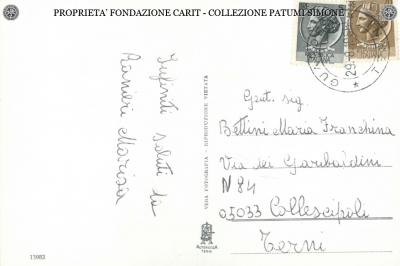 PROPRIETA' FONDAZIONE CARIT - COLLEZIONE PATUMI SIMONE
Infiniti saluti da
Ranieri Marisa
VERA FOTOGRAFIA - RIPRODUZIONE VIETATA
Gent. sig.
Bettini Maria Franchina
Via dei Garibaldini
N 84
05033 Collescipoli
Terni
13982